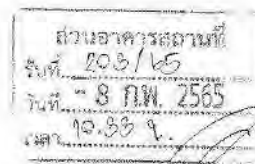 ส่วนอาคารสถานที่
รับที่ 203/65
วันที่ - 8 ก.พ. 2565
เวลา 10.33 น.